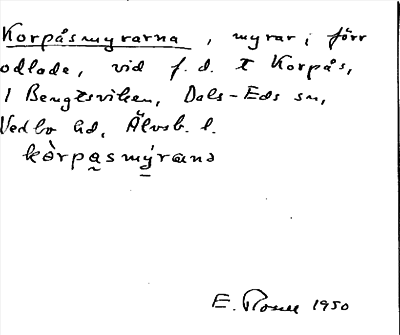 Korpåsmyrarna, myrar, förr
odlade, vid f. d. t Korpås,
1 Bengtsviken, Dals-Eds sn,
Vedbo hd, Älvsb. l.
kòrpa̰smýṟana
E. 1950